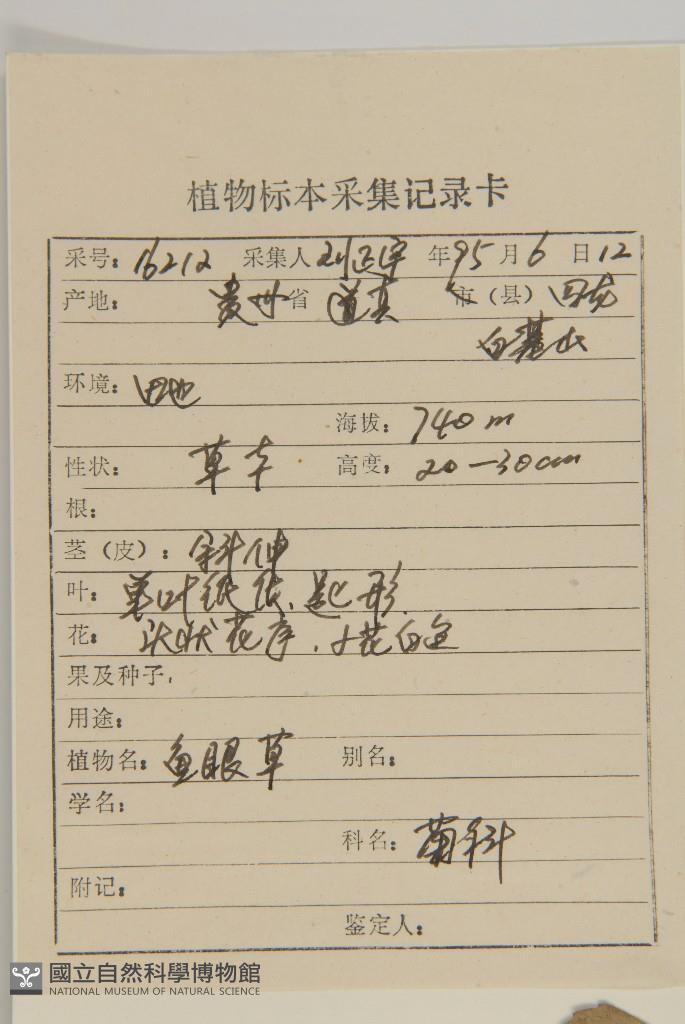 植物标本采集记录卡
采号：16212 采集人 刘正宇 年95月6日12
产地： 贵州省 道真 市（县）
环境：田地
海拔：740m
性状： 草本 高度：20—30cm
根：
茎（皮）：斜伸
叶：单叶纸质、匙形
花：头状花序，小花白色
果及种子：
用途：
植物名：鱼眼草 别名：
学名：
科名：菊科
附记：
鉴定人：
國立自然科學博物館
NATIONAL MUSEUM OF NATURAL SCIENCE